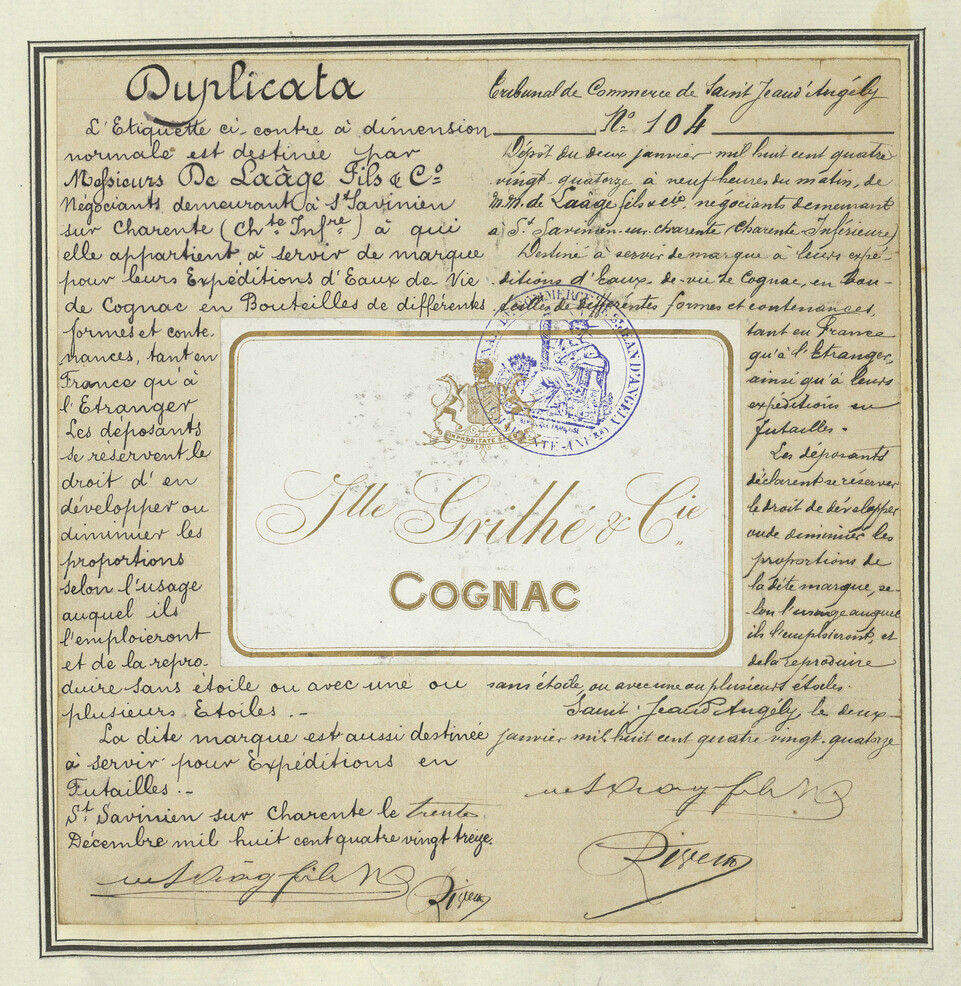 Duplicata
L'Etiquette ci-contre à dimension
normale est destinée par
Messieurs De Laâge Fils & Cº
Négociants demeurant à St Savinien
sur Charente (Chte Infre) à qui
elle appartient à servir de marque
pour leurs Expéditions d'Eaux de Vie
de Cognac en Bouteilles de différentes
formes et conte-
nances, tant en
France qu'à
l'Etranger
Les déposants
se réservent le
droit d'en
développer ou
diminuer les
proportions
selon l'usage
auquel ils
l'emploieront
et de la repro-
duire sans étoile ou avec une ou
plusieurs Etoiles.-
La dite marque est aussi destinée
à servir pour Expéditions en
Futailles.-
St Savinien sur Charente le trente
Décembre mil huit cent quatre vingt treize.
Tribunal de Commerce de Saint Jean d'Angély
Nº 104
Dépôt du deux janvier mil huit cent quatre
vingt quatorze à neuf heures du matin, de
M.M. de Laâge fils & cie, négociants demeurant
à St Savinien-sur-charente (Charente Inférieure)
Destiné à servir de marque à leurs expé-
ditions d'Eaux-de-vie de Cognac, en bou-
teilles de différentes formes et contenances,
tant en France
qu'à l'Etranger,
ainsi qu'à leurs
expéditions en
futailles.
Les déposants
déclarent se réserver
le droit de développer
ou de diminuer les
proportions de
la dite marque, se-
lon l'usage auquel
ils l'emploieront, et
de la reproduire
sans étoile, ou avec une ou plusieurs étoiles.
Saint-Jean d'Angély, le deux
janvier mil huit cent quatre vingt-quatorze
Jlle Grilhé & Cie
COGNAC